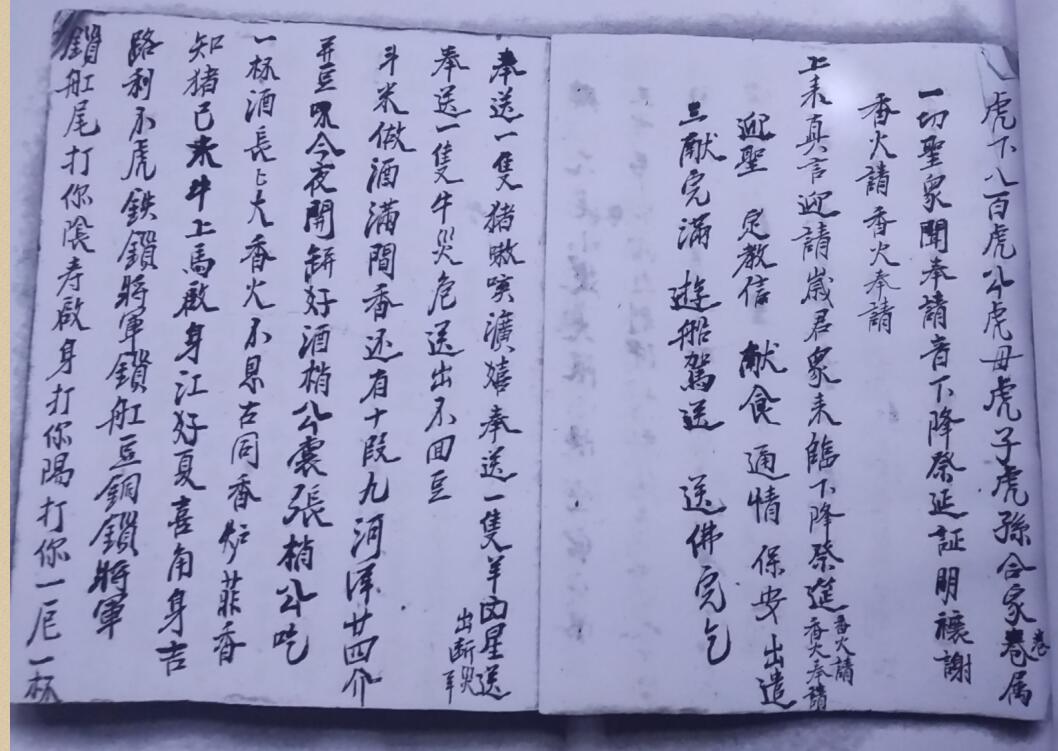 虎下八百虎公虎母虎子虎孫合家眷属
眷
一切聖衆聞奉請音下降祭延証明禳謝
香火請香火奉請
上来真言迎請歲君衆来臨下降祭筵香火請香火奉請
迎聖 定教信 献食 通情 保安 出遣
三献完滿 遊船駕送 送佛完乞
奉送一隻猪嗷嘆瀇嬉奉送一隻羊凶星送
出断
奉送一隻牛災危送出不回豆
斗米做酒滿間香还有十段九河澤廿四介
豆今夜開缾好酒梢公囊張梢公吃
一杯酒長上大香火不息古同香炉菲香
知猪已来牛上馬啟身江好夏喜角身吉
路利不虎鉄鎖將軍鎖舡豆銅鎖將軍
鎖舡尾打你陰寿啟身打你陽打你一卮一杯